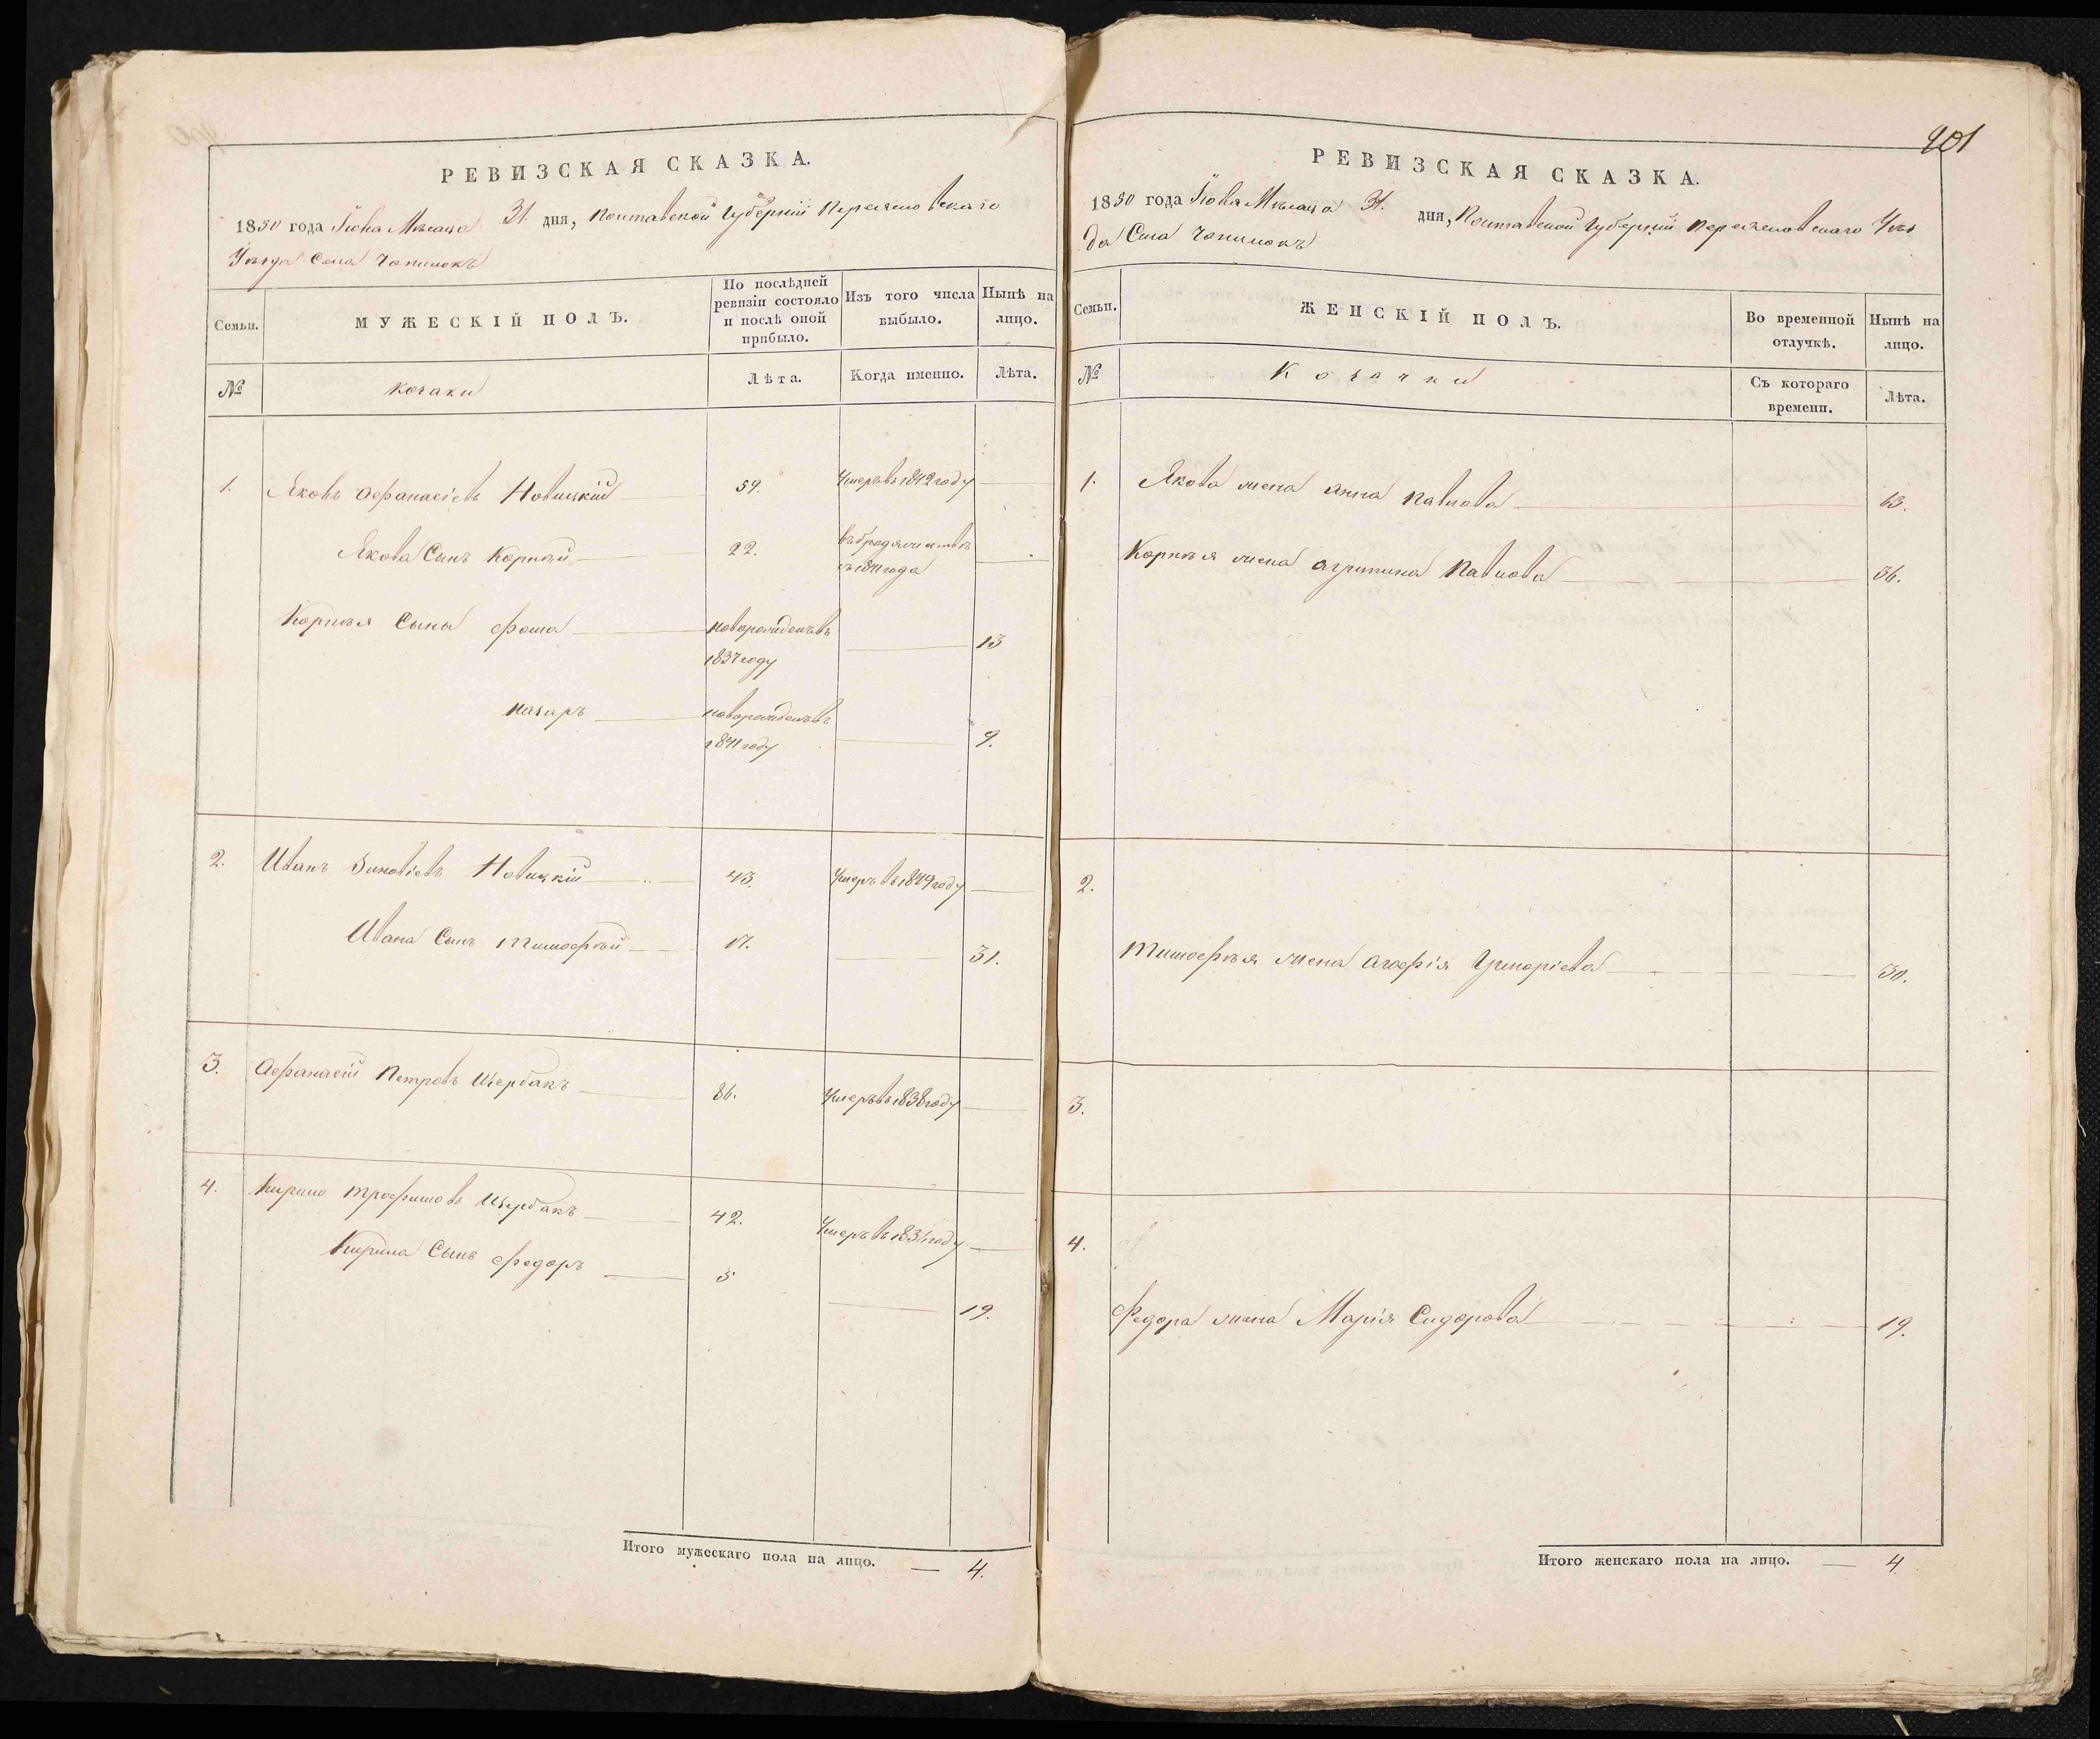 РЕВИЗСКАЯ СКАЗКА.
1850 года Іюва Мѣсяца 31. дня, Полтавской Губерніи Переяславскаго
Уѣзда Села Чопилокъ
Семьи.
МУЖЕСКІЙ ПОЛЪ.
По послѣдней ревизіи состояло и послѣ оной прибыло.
Изъ того числа выбыло.
Нынѣ на лицо.
№
Козаки
Лѣта.
Когда именно.
Лѣта.
1. Яковъ Афанасіевъ Новицкій 59. Умеръ въ 1842 году
Якова Сынъ Корнѣй 22. въ бродяжествѣ
съ 1841 года
Корнѣя Сыны Фома новорожденъ въ 13
1837 году
Назаръ новорожденъ въ 9.
1841 году
2. Иванъ Зиновіевъ Новицкій 43. Умеръ въ 1849 году
Ивана Сынъ Тимофѣй 17. 31.
3. Афанасій Петровъ Щербакъ 86. Умеръ въ 1838 году
4. Кирило Трофимовъ Щербакъ 42. Умеръ въ 1834 году
Кирила Сынъ Федоръ 5 19.
Итого мужескаго пола на лицо. — 4.
401
РЕВИЗСКАЯ СКАЗКА.
1850 года Іюва Мѣсяца 31. дня, Полтавской Губерніи Переяславскаго Уѣз
да Села Чопилокъ
Семьи.
ЖЕНСКІЙ ПОЛЪ.
Во временной отлучкѣ.
Нынѣ на лицо.
№
Козачки
Съ котораго времени.
Лѣта.
1. Якова жена Анна Павлова 63.
Корнѣя жена Агрипина Павлова 36.
2.
Тимофѣя жена Агафія Григоріева 30.
3.
4.
Федора жена Марія Сидорова 19.
Итого женскаго пола на лицо. — 4.